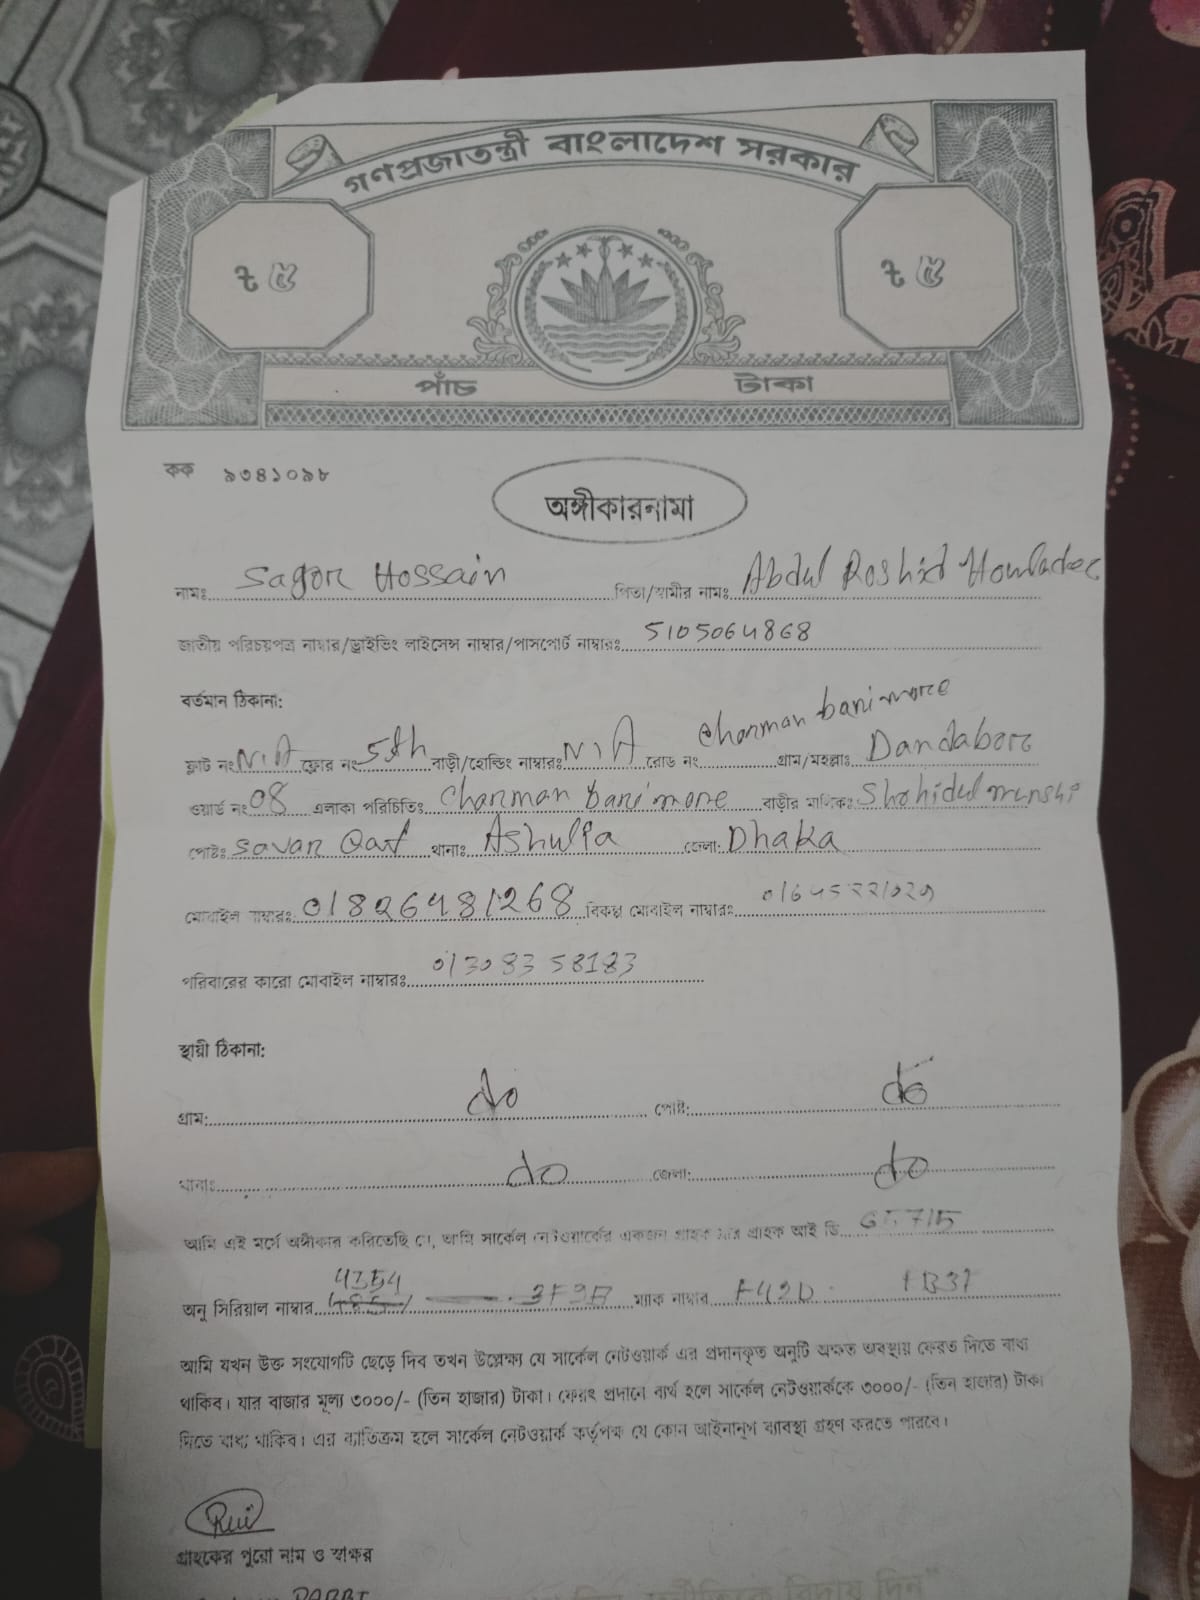 গণপ্রজাতন্ত্রী বাংলাদেশ সরকার
৳ ৫ ৳ ৫
পাঁচ টাকা
কক ৯৩৪১০৯৮
অঙ্গীকারনামা
নামঃ Sagor Hossain পিতা/স্বামীর নামঃ Abdul Roshid Howlader
জাতীয় পরিচয়পত্র নাম্বার/ড্রাইভিং লাইসেন্স নাম্বার/পাসপোর্ট নাম্বারঃ 5105064868
বর্তমান ঠিকানা:
ফ্লাট নং N/A ফ্লোর নং 5th বাড়ী/হোল্ডিং নাম্বারঃ N/A রোড নং Charman bari more গ্রাম/মহল্লাঃ Dandabore
ওয়ার্ড নং 08 এলাকা পরিচিতিঃ Charman bari more বাড়ীর মালিকঃ Shohidul munshi
পোষ্টঃ Savar থানাঃ Ashulia জেলা: Dhaka
মোবাইল নাম্বারঃ 01826481268 বিকল্প মোবাইল নাম্বারঃ
পরিবারের কারো মোবাইল নাম্বারঃ 01308358183
স্থায়ী ঠিকানা:
গ্রাম: do পোষ্ট: do
থানাঃ do জেলা: do
আমি এই মর্মে অঙ্গীকার করিতেছি যে, আমি সার্কেল নেটওয়ার্কের একজন গ্রাহক যার গ্রাহক আই ডি
অনু সিরিয়াল নাম্বার 4354 ম্যাক নাম্বার
আমি যখন উক্ত সংযোগটি ছেড়ে দিব তখন উল্লেক্ষ্য যে সার্কেল নেটওয়ার্ক এর প্রদানকৃত অনুটি অক্ষত অবস্থায় ফেরত দিতে বাধ্য
থাকিব। যার বাজার মূল্য ৩০০০/- (তিন হাজার) টাকা। ফেরৎ প্রদানে ব্যর্থ হলে সার্কেল নেটওয়ার্ককে ৩০০০/- (তিন হাজার) টাকা
দিতে বাধ্য থাকিব। এর ব্যতিক্রম হলে সার্কেল নেটওয়ার্ক কর্তৃপক্ষ যে কোন আইনানুগ ব্যাবস্থা গ্রহণ করতে পারবে।
গ্রাহকের পুরো নাম ও স্বাক্ষর